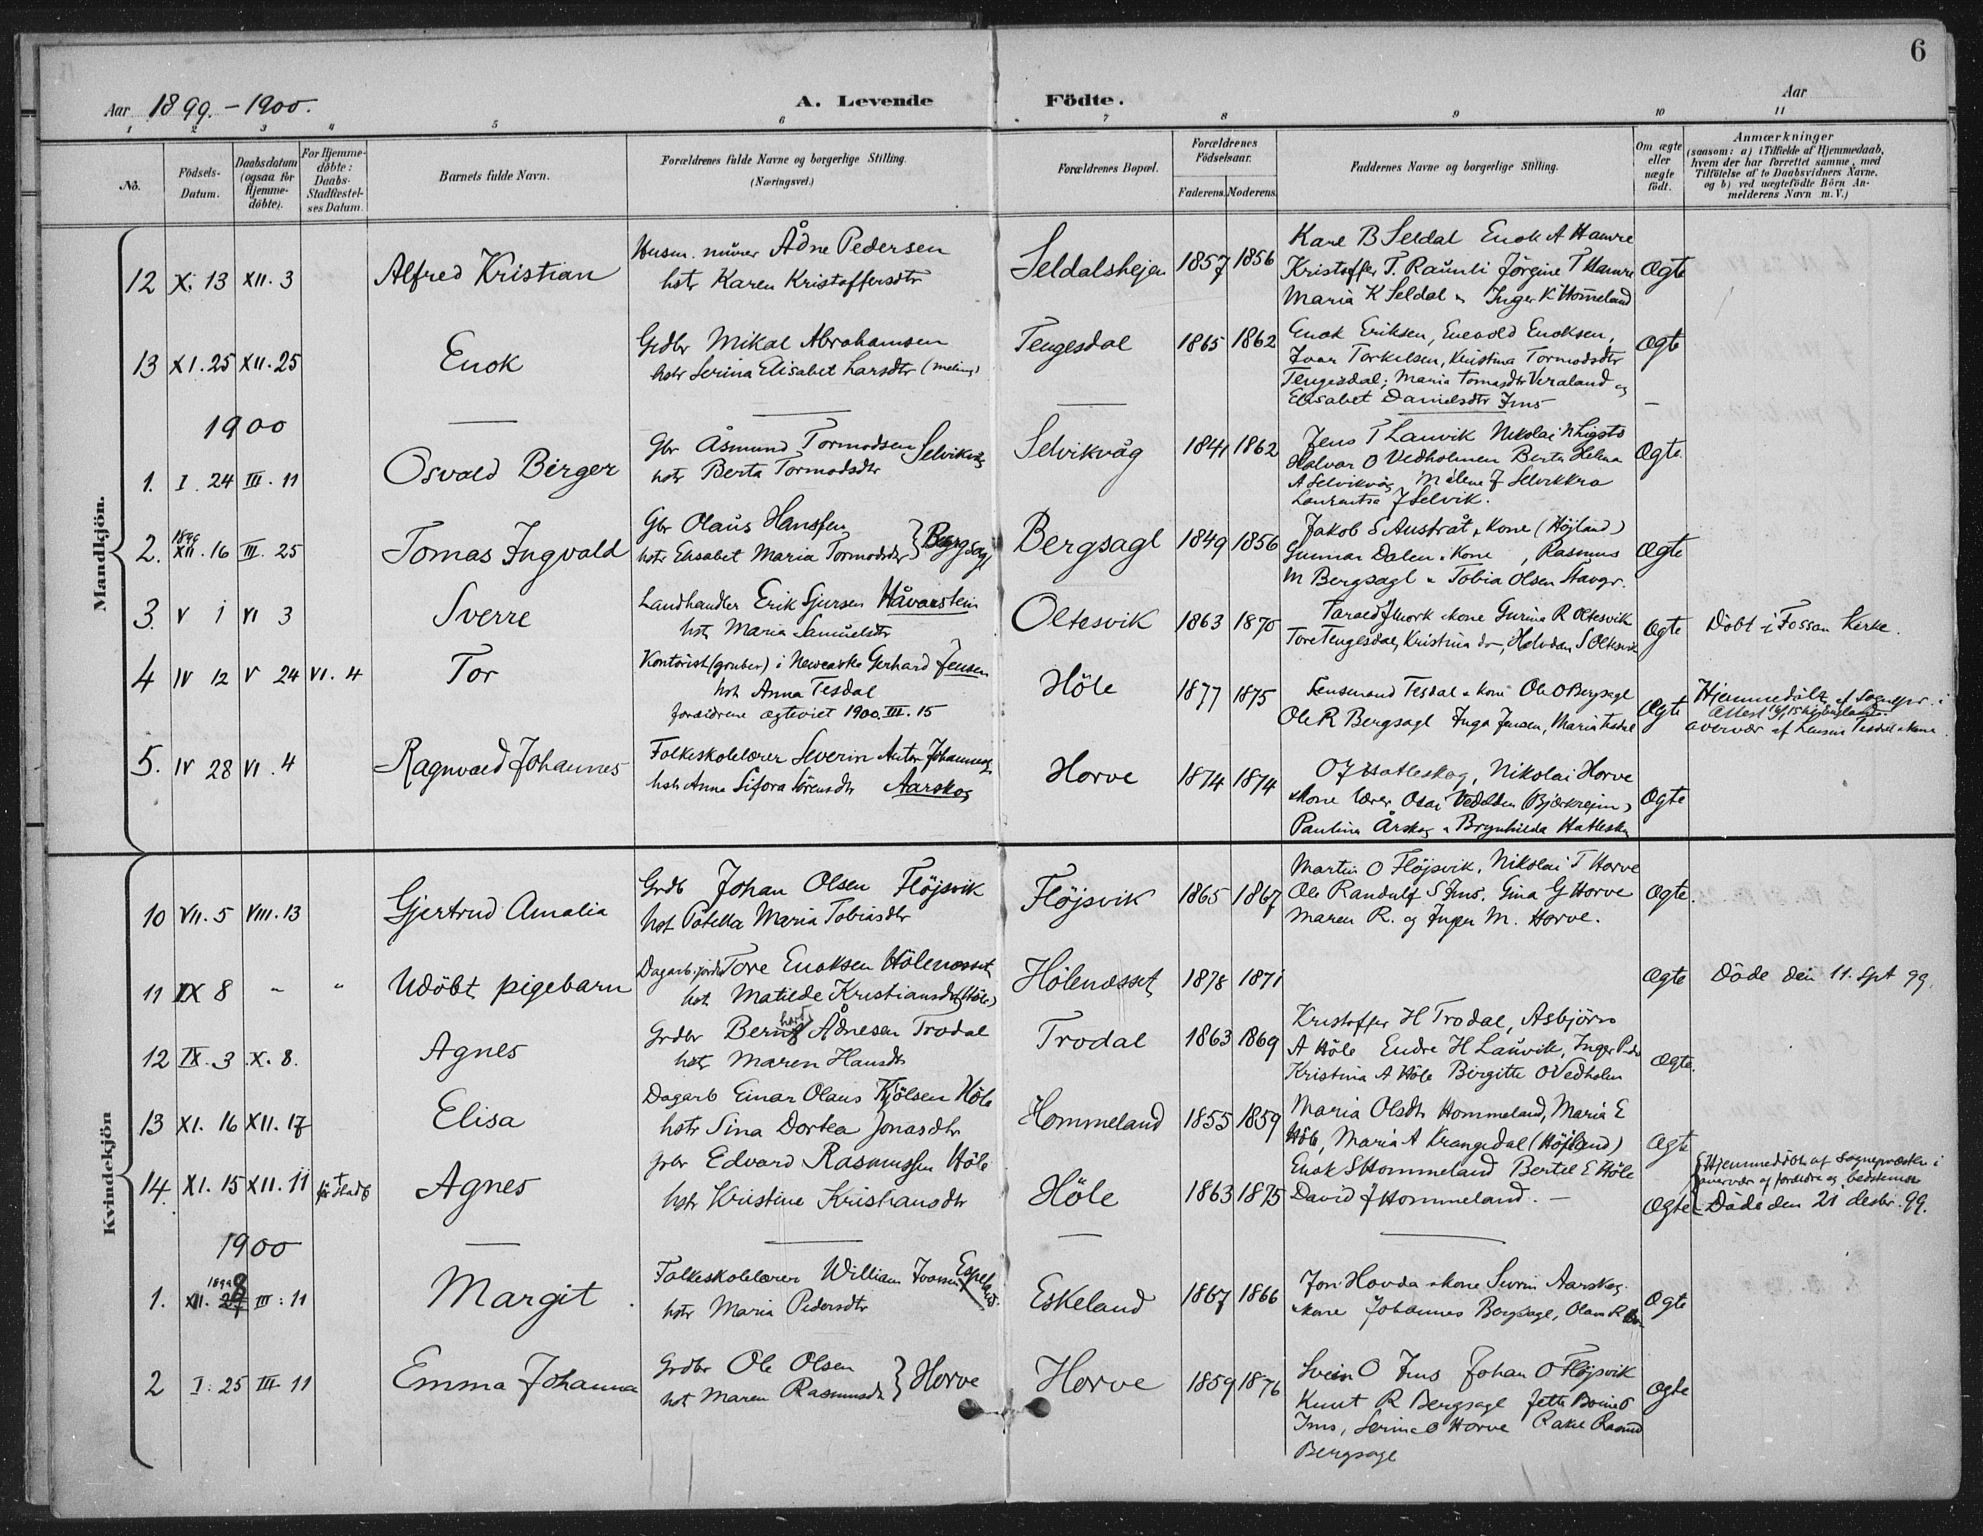 6
Aar 1899.-1900. A. Levende Födte. Aar
1 2 3 4 5 6 7 8 9 10 11
No. Födsels-Datum. Daabsdatum (ogsaa for Hjemme-döbte). For Hjemme-döbte: Daabs-Stadfæstel-ses Datum. Barnets fulde Navn. Forældrenes fulde Navne og borgerlige Stilling. (Næringsvei.) Forældrenes Bopæl. Forældrenes Födselsaar. Faderens. Moderens. Faddernes Navne og borgerlige Stilling. Om ægte eller uægte födt. Anmærkninger (saasom: a) i Tilfælde af Hjemmedaab, hvem der har forrettet samme, med Tilföielse af to Daabsvidners Navne, og b) ved uægtefödte Börn An-melderens Navn m. V.)
Mandkjön.
12 X. 13 XII. 3 Alfred Kristian Husm. murer Ådne Pedersen Seldalshejen 1857 1856 Karl B Seldal Enok A Hamre Ægte
hstr Karen Kristoffersdtr Kristoffer T. Raunli Jørgine T Hamre
Maria K Seldal Inger K Homeland
13 XI. 25 XII. 25 Enok Grdbr Mikal Abrahamsen Tengesdal 1865 1862 Enok Eriksen, Enevold Enoksen, Ægte
hstr Serina Elisabet Larsdtr (Meling) Ivar Torkelsen, Kristina Tormodsdtr
Tengesdal; Maria Tomasdtr Veraland og
Elisabet Danielsdtr Ims
1900
1. I. 24 III. 11 Osvald Birger Gbr Åsmund Tormodsen Selvikvåg Selvikvåg 1844 1862 Jens T Lauvik Nikolai Ægte.
hstr Berta Tormodsdtr Halvar O Vedholmen Berta Helena
A Selvikvåg Malene J Selvikkra
Laurentsa J Selvik.
2. 1899 XII. 16 III. 25 Tomas Ingvald Gbr Olaus Hanssen Bergsagl Bergsagl 1849 1856 Jakob S Austråt Kone (Höjland) Ægte
hstr Elisabet Maria Tormodsdtr Gunnar Dalen Kone, Rasmus
M Bergsagl Tobia Olsen Stavgr.
3. V 1 VI 3 Sverre Landhandler Erik Sjursen Håvarstein Oltesvik 1863 1870 Gurina R Oltesvik Ægte Döbt i Fossan Kerke.
hstr Maria Samuelsdtr Tore Tengesdal, Kristina do, Halvdan S Oltesvik
4 IV 12 V 24 VI. 4 Tor Kontorist (gruber) i Newcastle Gerhard Jensen Höle 1877 1875 Lensmand Tesdal kone Ole O Bergsagl Ægte Hjemmedöbt af Sognepr. i
hstr Anna Tesdal Ole R Bergsagl Inga Jensen, Maria Tesdal
forældrene ægteviet 1900. III. 15 overvær af Lensm Tesdal
5. IV 28 VI. 4 Ragnvald Johannes Folkeskolelærer Severin Anton Johannesen Horve 1874 1874 O J Hatleskog, Nikolai Horve Ægte
hstr Anna Sifora Sörensdtr Aarskog kone lærer (Bjerkrejm)
Paulina Årskog Brynhilda Hatleskog
Kvindekjön
10 VII. 5 VIII. 13 Gjertrud Amalia Grdb Johan Olsen Flöjsvik Flöjsvik 1865 1867 Martin O Flöjsvik, Nikolai T Horve Ægte.
hst Maria Tobiasdtr Ole Randulf S Ims. Gina G Horve
Maren R. og Inger M. Horve.
11 IX 8 " " Udöbt pigebarn Dagarb. Tore Enoksen Hölenæsset Hölenæsset 1878 1871 Ægte Döde den 11. Spt 99.
hst. Matilde Kristiansdtr (Höle)
12 IX. 3 X. 8. Agnes Grdbr Ådnesen Trodal Trodal 1863 1869 Kristoffer H Trodal, Asbjörn Ægte.
hstr Maren Hansdtr A Höle Endre H Lauvik, Inger
Kristina A Höle Birgitte O Vedholm
13 XI. 16 XII. 17 Elisa Dagarb Einar Olaus Kjölsen Höle Hommeland 1855 1859 Maria Olsdtr Hommeland, Maria E Ægte
hstr Sina Dortea Jonasdtr Höle, Maria A Krangedal (Höjland)
14. XI. 15 XII. 11 Agnes Grbr Edvard Rasmussen Höle Höle 1863 1875 Enok S Hommeland Bertel E Höle Ægte Hjemmedöbt af Sognepræsten i
hstr Kristine Kristiansdtr David J Hommeland. overvær af forældre og bedstemor
Döde den 21 desbr. 99.
1900
1. 1899 XII. 28 III: 11 Margit Folkeskolelærer William Espeland Eskeland 1867 1866 Jon Hovda kone Aarskog Ægte
hstr Maria Pedersdtr kone Johannes Bergsagl, Olaus R
2 I. 25 III 11 Emma Johanna Grdbr Ole Olsen Horve Horve 1859 1876 Svein O Ims Johan O Flöjsvik Ægte
hst Maren Rasmusdtr Knut R Bergsagl
Ims, Serina O Horve Rakel
Bergsagl